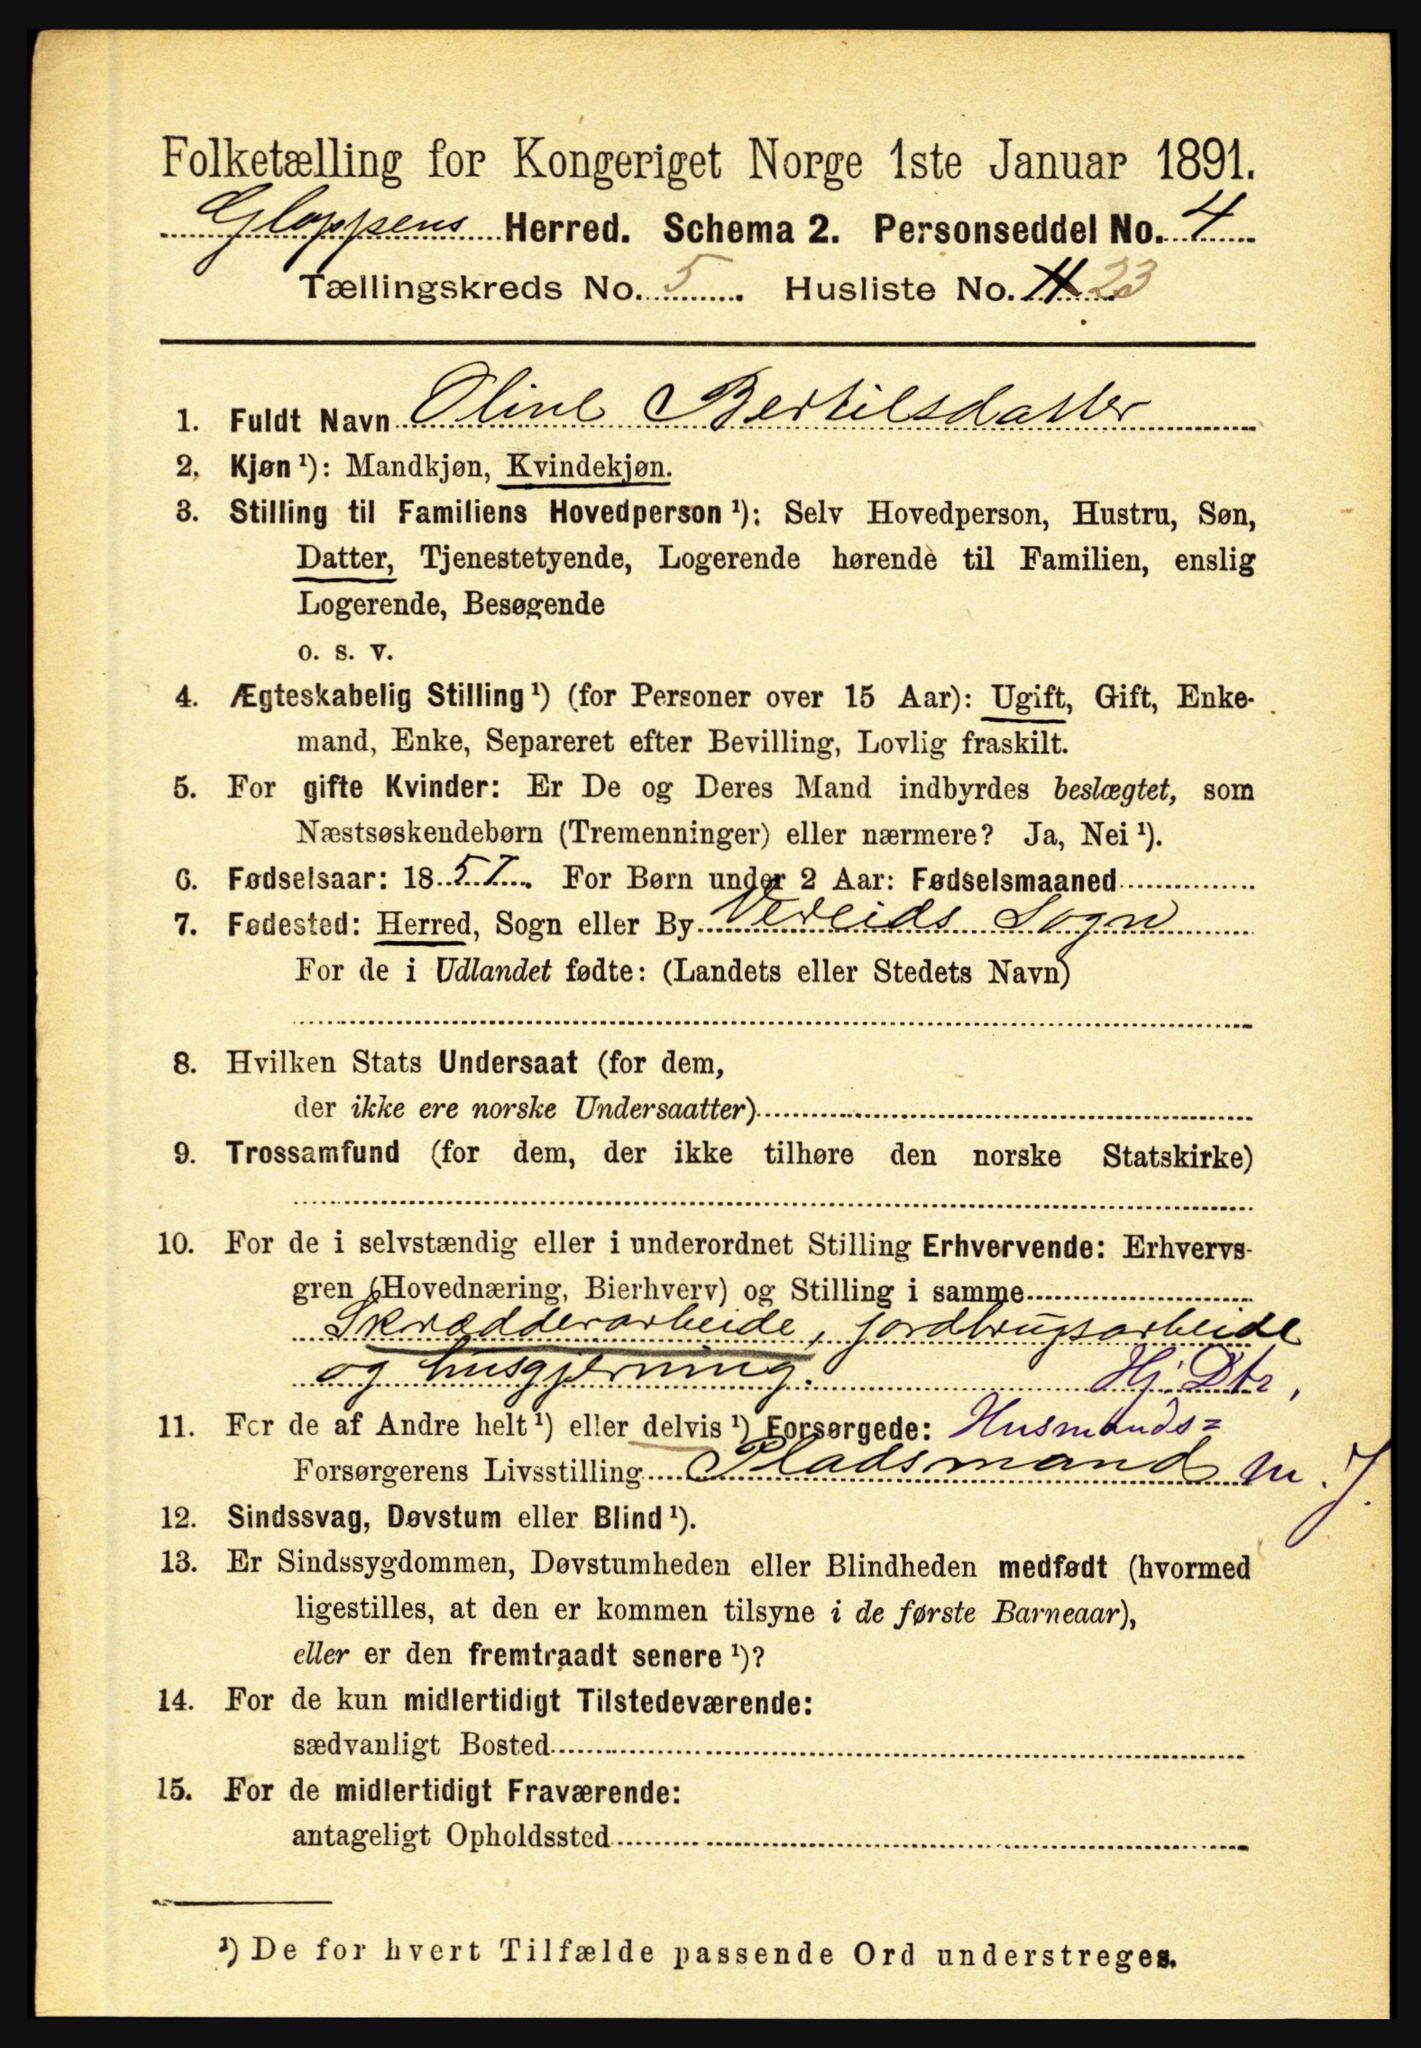 Folketælling for Kongeriget Norge 1ste Januar 1891.
Gloppens Herred. Schema 2. Personseddel No. 4
Tællingskreds No. 5. Husliste No. 23
1. Fuldt Navn Oline Bertilsdatter
2. Kjøn ¹): Mandkjøn, Kvindekjøn.
3. Stilling til Familiens Hovedperson ¹): Selv Hovedperson, Hustru, Søn,
Datter, Tjenestetyende, Logerende hørende til Familien, enslig
Logerende, Besøgende
o. s. v.
4. Ægteskabelig Stilling ¹) (for Personer over 15 Aar): Ugift, Gift, Enke-
mand, Enke, Separeret efter Bevilling, Lovlig fraskilt.
5. For gifte Kvinder: Er De og Deres Mand indbyrdes beslægtet, som
Næstsøskendebørn (Tremenninger) eller nærmere? Ja, Nei ¹).
6. Fødselsaar: 1857. For Børn under 2 Aar: Fødselsmaaned
7. Fødested: Herred, Sogn eller By Vereids Sogn
For de i Udlandet fødte: (Landets eller Stedets Navn)
8. Hvilken Stats Undersaat (for dem,
der ikke ere norske Undersaatter)
9. Trossamfund (for dem, der ikke tilhøre den norske Statskirke)
10. For de i selvstændig eller i underordnet Stilling Erhvervende: Erhvervs-
gren (Hovednæring, Bierhverv) og Stilling i samme
Skrædderarbeide, jordbrugsarbeide
og husgjerning. Hj. Dtr,
11. For de af Andre helt ¹) eller delvis ¹) Forsørgede: Husmands=
Forsørgerens Livsstilling Pladsmand m. J.
12. Sindssvag, Døvstum eller Blind ¹).
13. Er Sindssygdommen, Døvstumheden eller Blindheden medfødt (hvormed
ligestilles, at den er kommen tilsyne i de første Barneaar),
eller er den fremtraadt senere ¹)?
14. For de kun midlertidigt Tilstedeværende:
sædvanligt Bosted
15. For de midlertidigt Fraværende:
antageligt Opholdssted
¹) De for hvert Tilfælde passende Ord understreges.